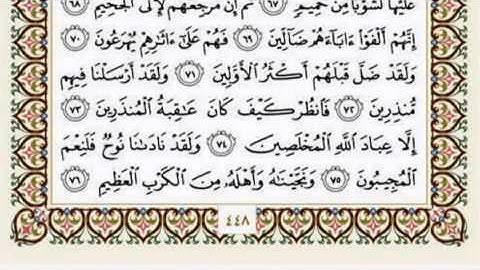 عَلَيْهَا لَشَوْبًا مِّنْ حَمِيمٍ ٦٧ ثُمَّ إِنَّ مَرْجِعَهُمْ لَإِلَى الْجَحِيمِ ٦٨
إِنَّهُمْ أَلْفَوْا ءَابَآءَهُمْ ضَآلِّينَ ٦٩ فَهُمْ عَلَىٰٓ ءَاثَٰرِهِمْ يُهْرَعُونَ ٧٠
وَلَقَدْ ضَلَّ قَبْلَهُمْ أَكْثَرُ الْأَوَّلِينَ ٧١ وَلَقَدْ أَرْسَلْنَا فِيهِم
مُّنذِرِينَ ٧٢ فَانظُرْ كَيْفَ كَانَ عَٰقِبَةُ الْمُنذَرِينَ ٧٣
إِلَّا عِبَادَ اللَّهِ الْمُخْلَصِينَ ٧٤ وَلَقَدْ نَادَىٰنَا نُوحٌ فَلَنِعْمَ
الْمُجِيبُونَ ٧٥ وَنَجَّيْنَٰهُ وَأَهْلَهُۥ مِنَ الْكَرْبِ الْعَظِيمِ ٧٦
٤٤٨